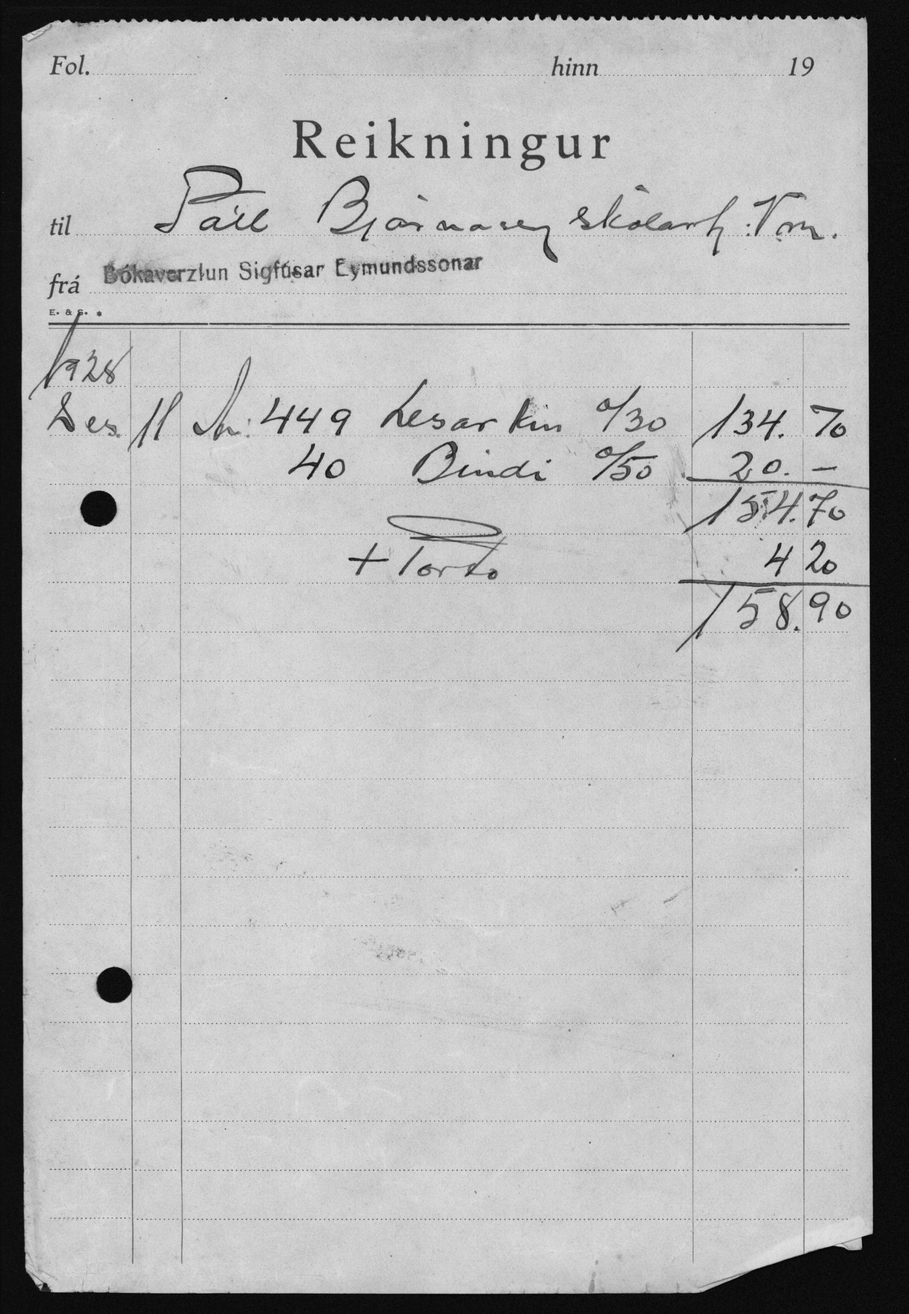 Fol. hinn 19
Reikningur
til Páll Bjarnason skólastj. Vm.
frá Bókaverzlun Sigfúsar Eymundssonar
E. & S.
1928
Des. 11 449 Lesarkir á/30 134.70
40 Bindi á/50 20.–
154.70
+ Porto 4 20
158.90